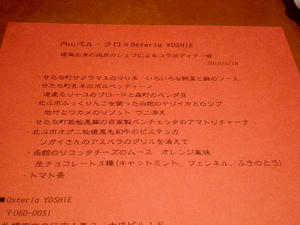 円山バル・クロ×Osteria YOSHIE
道南出身の両店のシェフによるコラボディナー会
2015/5/18
・せたな町サクラマスのマリネ いろいろな野菜と卵のソース
・せたな町乳羊のボルペッティーノ
道産モリーユのブロードと森町のパンダ豆
・北斗市ふっくりんこを使った函館のヤリイカとGシブ
地付とワカメのリゾット ウニ添え
・せたな町放牧黒豚の自家製パンチェッタのアマトリチャーナ
・北斗市オグニ牧場黒毛和牛のビステッカ
ソガイさんのアスパラのグリルを添えて
・函館のリコッタチーズのムース オレンジ風味
・生チョコレート3種(キャットミント、フェンネル、ふきのとう)
・トマト茶
■Osteria YOSHIE
〒060-0051